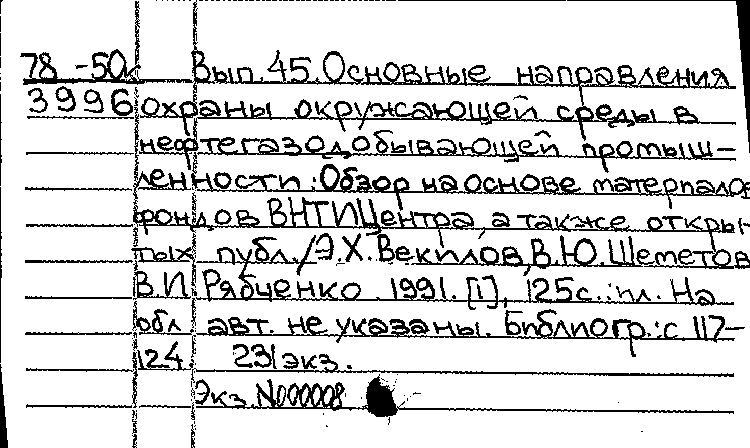 78-50к Вып.45. Основные направления
3996 охраны окружающей среды в
нефтегазодобывающей промыш-
ленности: Обзор на основе материалов
фондов ВНТИЦентра, а также откры-
тых публ./Э.Х.Векилов, В.Ю.Шеметов,
В.И.Рябченко. 1991. [1], 125с.:ил. На
обл. авт. не указаны. Библиогр.:с.117-
124. 231экз.
Экз.N000008